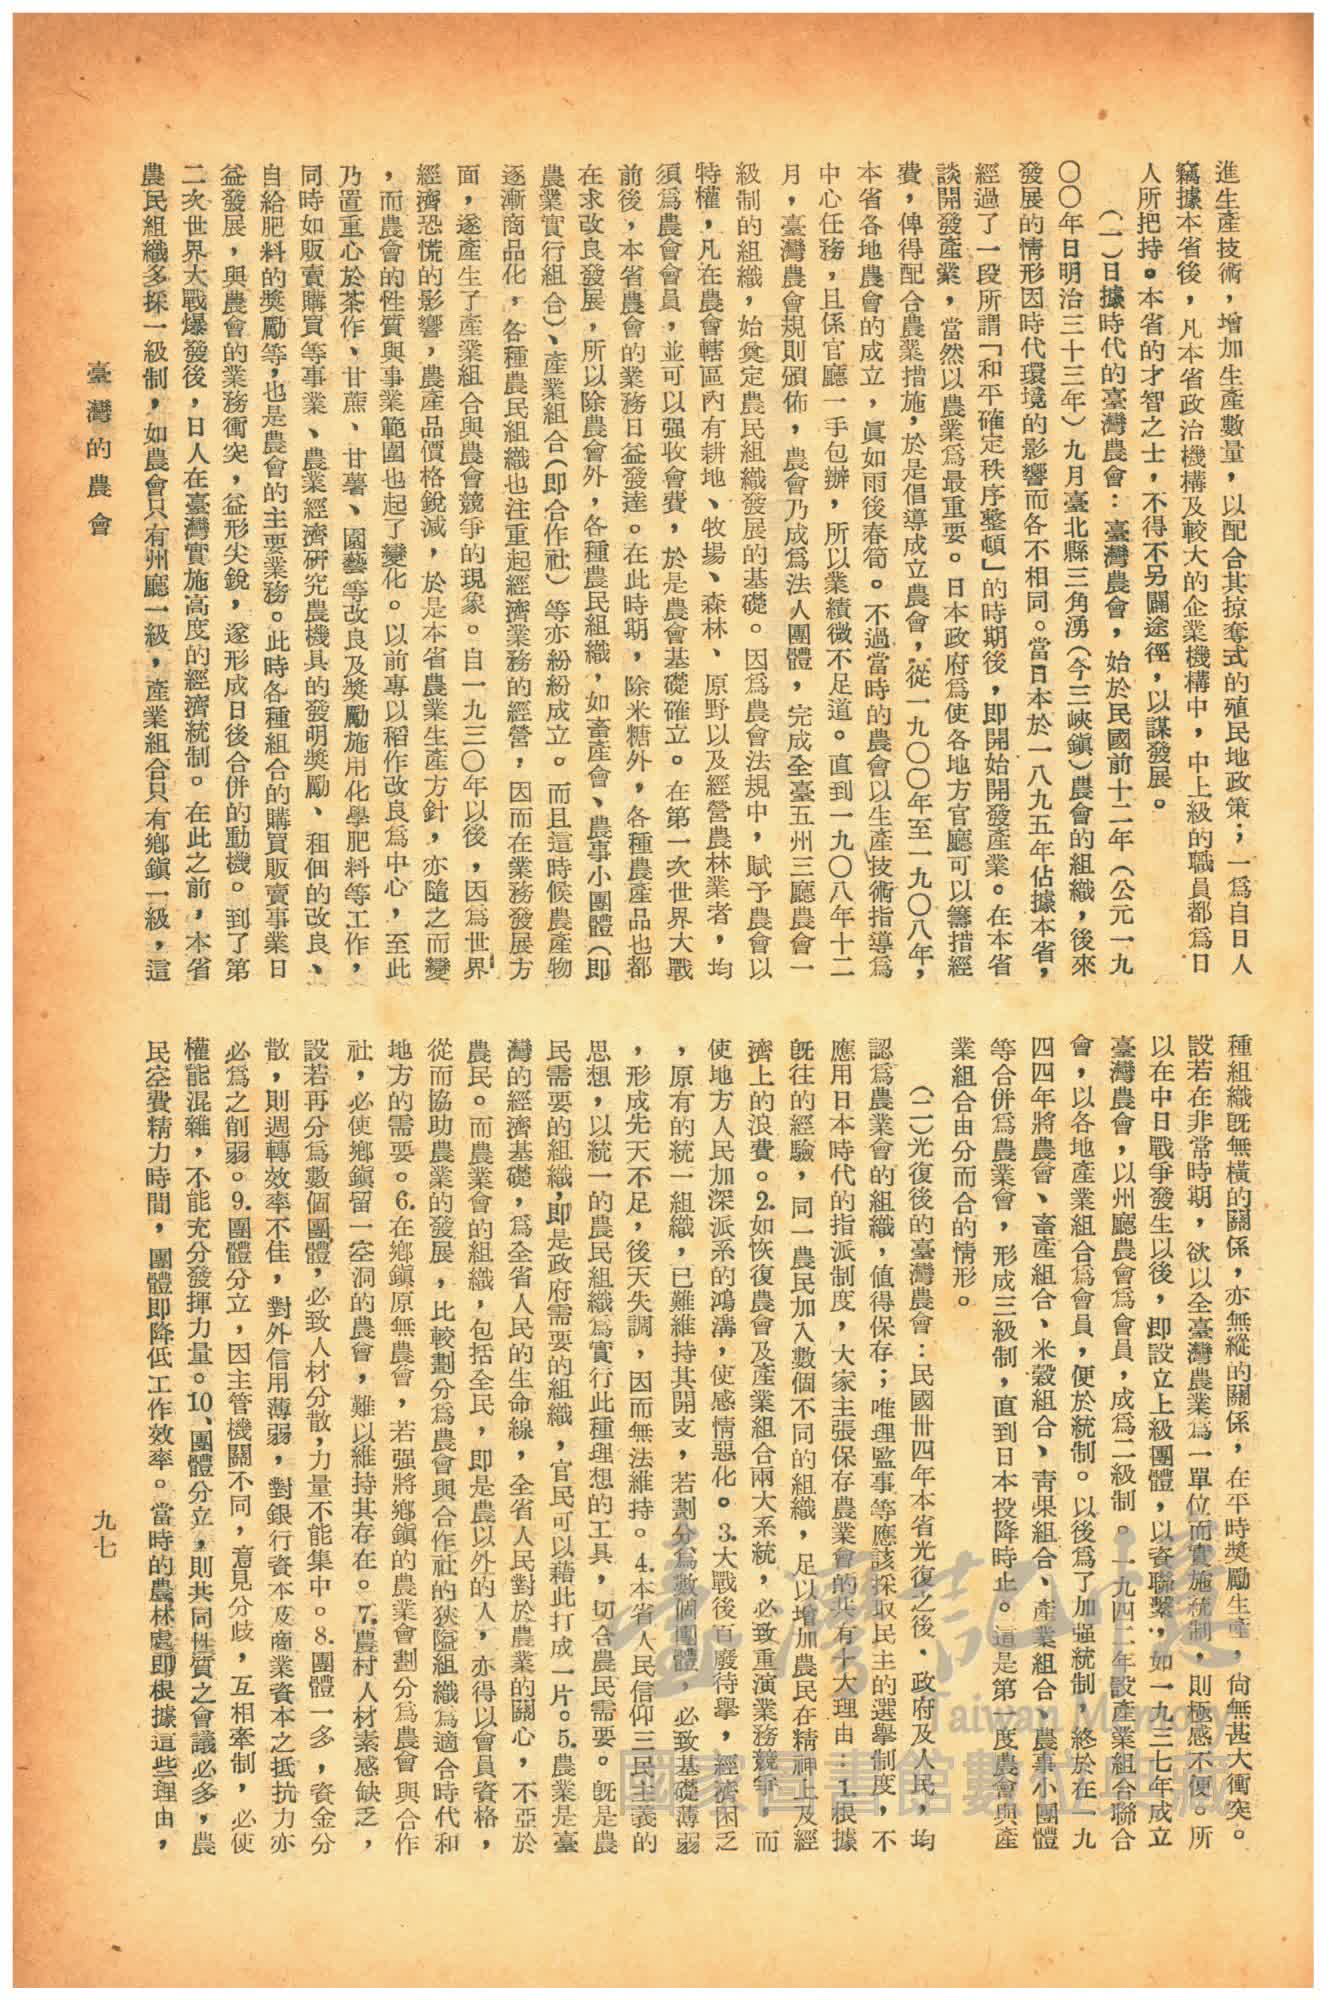 進生產技術，增加生產數量，以配合其掠奪式的殖民地政策；一爲自日人
竊據本省後，凡本省政治機構及較大的企業機構中，中上級的職員都爲日
人所把持。本省的才智之士，不得不另闢途徑，以謀發展。
（一）日據時代的臺灣農會：臺灣農會，始於民國前十二年（公元一九
〇〇年日明治三十三年）九月臺北縣三角湧（今三峽鎮）農會的組織，後來
發展的情形因時代環境的影響而各不相同。當日本於一八九五年佔據本省，
經過了一段所謂「和平確定秩序整頓」的時期後，即開始開發產業。在本省
談開發產業，當然以農業爲最重要。日本政府爲使各地方官廳可以籌措經
費，俾得配合農業措施，於是倡導成立農會，從一九〇〇年至一九〇八年，
本省各地農會的成立，眞如雨後春筍。不過當時的農會以生產技術指導爲
中心任務，且係官廳一手包辦，所以業績微不足道。直到一九〇八年十二
月，臺灣農會規則頒佈，農會乃成爲法人團體，完成全臺五州三廳農會一
級制的組織，始奠定農民組織發展的基礎。因爲農會法規中，賦予農會以
特權，凡在農會轄區內有耕地、牧場、森林、原野以及經營農林業者，均
須爲農會會員，並可以强收會費，於是農會基礎確立。在第一次世界大戰
前後，本省農會的業務日益發達。在此時期，除米糖外，各種農產品也都
在求改良發展，所以除農會外，各種農民組織，如畜產會、農事小團體（即
農業實行組合）、產業組合（即合作社）等亦紛紛成立。而且這時候農產物
逐漸商品化，各種農民組織也注重起經濟業務的經營，因而在業務發展方
面，遂產生了產業組合與農會競爭的現象。自一九三〇年以後，因爲世界
經濟恐慌的影響，農產品價格銳減，於是本省農業生產方針，亦隨之而變
，而農會的性質與事業範圍也起了變化。以前專以稻作改良爲中心，至此
乃置重心於茶作、甘蔗、甘薯、園藝等改良及獎勵施用化學肥料等工作，
同時如販賣購買等事業、農業經濟研究農機具的發明獎勵、租佃的改良、
自給肥料的獎勵等，也是農會的主要業務。此時各種組合的購買販賣事業日
益發展，與農會的業務衝突，益形尖銳，遂形成日後合併的動機。到了第
二次世界大戰爆發後，日人在臺灣實施高度的經濟統制。在此之前，本省
農民組織多採一級制，如農會只有州廳一級，產業組合只有鄉鎮一級，這
種組織旣無橫的關係，亦無縱的關係，在平時獎勵生產，尙無甚大衝突。
設若在非常時期，欲以全臺灣農業爲一單位而實施統制，則極感不便。所
以在中日戰爭發生以後，即設立上級團體，以資聯繫，如一九三七年成立
臺灣農會，以州廳農會爲會員，成爲二級制。一九四二年設產業組合聯合
會，以各地產業組合爲會員，便於統制。以後爲了加强統制，終於在一九
四四年將農會、畜產組合、米穀組合、靑果組合、產業組合、農事小團體
等合併爲農業會，形成三級制，直到日本投降時止。這是第一度農會與產
業組合由分而合的情形。
（二）光復後的臺灣農會：民國卅四年本省光復之後、政府及人民，均
認爲農業會的組織，值得保存；唯理監事等應該採取民主的選舉制度，不
應用日本時代的指派制度，大家主張保存農業會的共有十大理由：1.根據
旣往的經驗，同一農民加入數個不同的組織，足以增加農民在精神上及經
濟上的浪費。2.如恢復農會及產業組合兩大系統，必致重演業務競爭，而
使地方人民加深派系的鴻溝，使感情惡化。3.大戰後百廢待舉，經濟困乏
，原有的統一組織，已難維持其開支，若劃分爲數個團體，必致基礎薄弱
，形成先天不足，後天失調，因而無法維持。4.本省人民信仰三民主義的
思想，以統一的農民組織爲實行此種理想的工具，切合農民需要。旣是農
民需要的組織，即是政府需要的組織，官民可以藉此打成一片。5.農業是臺
灣的經濟基礎，爲全省人民的生命線，全省人民對於農業的關心，不亞於
農民。而農業會的組織，包括全民，即是農以外的人，亦得以會員資格，
從而協助農業的發展，比較劃分爲農會與合作社的狹隘組織爲適合時代和
地方的需要。6.在鄉鎮原無農會，若强將鄉鎮的農業會劃分爲農會與合作
社，必使鄉鎮留一空洞的農會，難以維持其存在。7.農村人材素感缺乏，
設若再分爲數個團體，必致人材分散，力量不能集中。8.團體一多，資金分
散，則週轉效率不佳，對外信用薄弱，對銀行資本及商業資本之抵抗力亦
必爲之削弱。9.團體分立，因主管機關不同，意見分歧，互相牽制，必使
權能混雜，不能充分發揮力量。10、團體分立，則共同性質之會議必多，農
民空費精力時間，團體即降低工作效率。當時的農林處即根據這些理由，
臺灣的農會
九七
臺灣記憶
Taiwan Memory
國家圖書館數位典藏